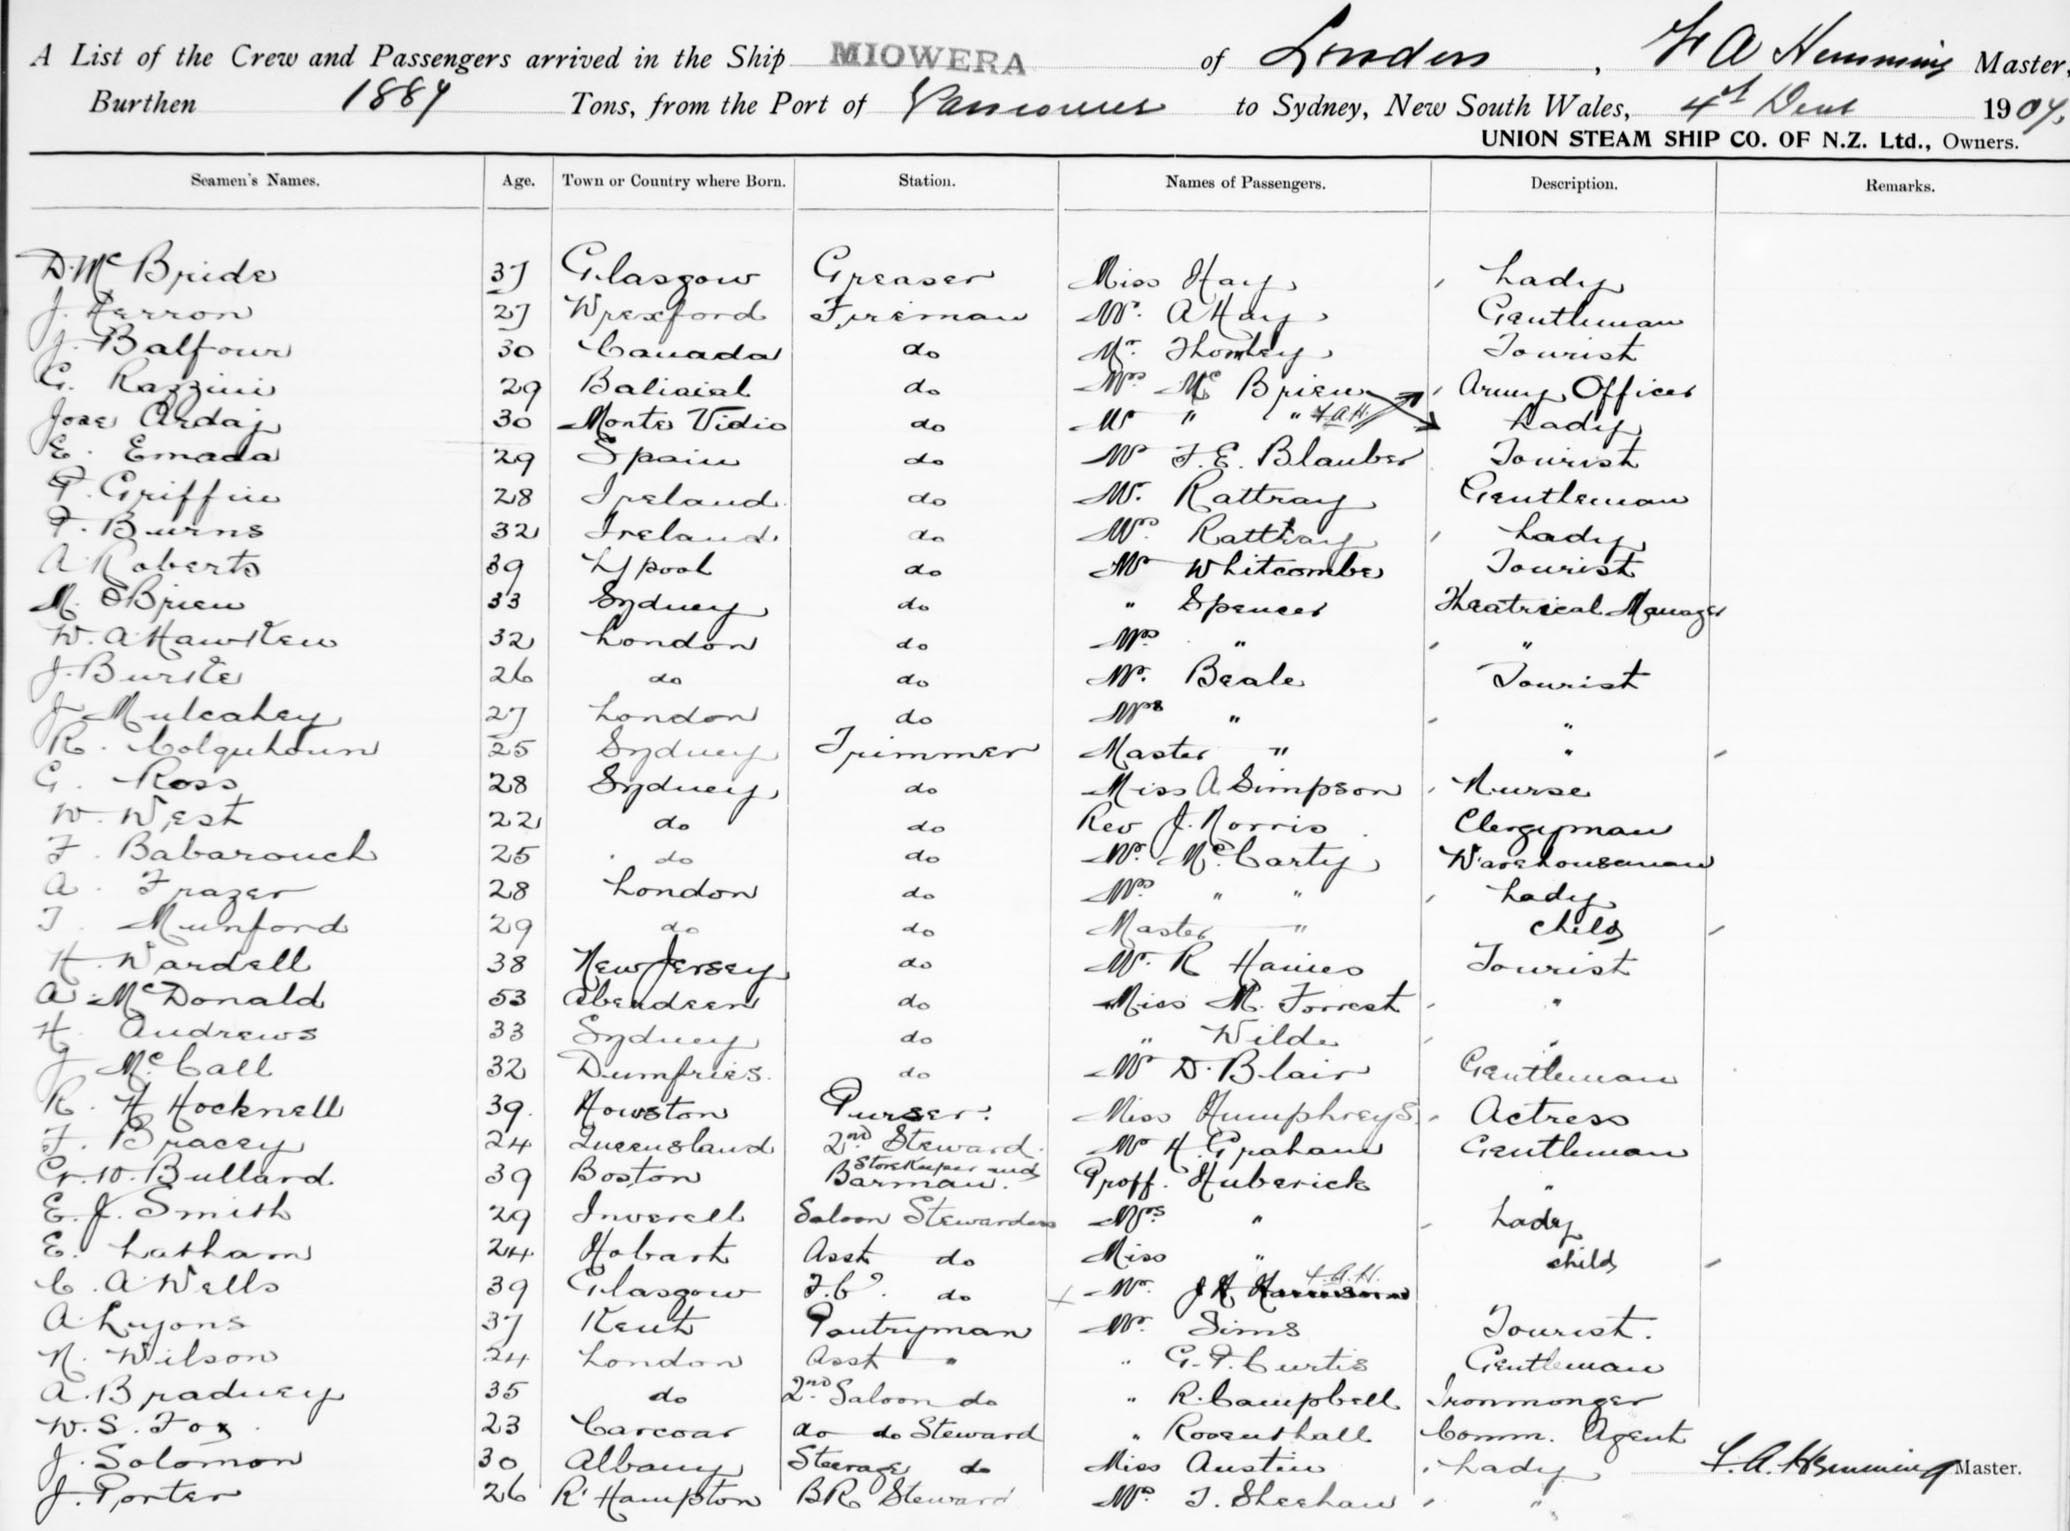 A List of the Crew and Passengers arrived in the Ship MIOWERA of London, F A Hemming Master,
Burthen 1889 Tons, from the Port of Vancouver to Sydney, New South Wales, 4th 1904.
UNION STEAM SHIP CO. OF N.Z. Ltd., Owners.
Seamen's Names. Age. Town or Country where Born. Station. Names of Passengers. Description. Remarks.
D. McBride 37 Glasgow Greaser Miss Hay Lady
J. Herron 27 Wrexford Fireman Mr. A Hay Gentleman
J. Balfour 30 Canada do Mr. Thomley Tourist
G. Razzini 29 do Mrs McBrien Army Officer
Jose Ardaj 30 Monte Vidio do Mr " " F.A.H. Lady
E. Emada 29 Spain do Mr F. E. Blauber Tourist
P. Griffin 28 Ireland do Mr. Rattray Gentleman
F. Burns 32 Ireland do Mrs. Rattray Lady
A Roberts 39 L'pool do Mr Whitcombe Tourist
M. O'Brien 33 Sydney do " Spencer Theatrical Manager
W. A. Hawken 32 London do Mrs " "
J. Burke 26 do do Mr. Beale Tourist
J Mulcahey 27 London do Mrs " "
R. Colquhoun 25 Sydney Trimmer Master " "
G. Ross 28 Sydney do Miss A Simpson Nurse
W. West 22 do do Rev J. Norris Clergyman
F. Babarouch 25 do do Mr. McCarty Warehouseman
A. Frazer 28 London do Mrs " " Lady
T. Munford 29 do do Master " child
H. Wardell 38 New Jersey do Mr. R Haines Tourist
A. McDonald 53 Aberdeen do Miss M. Forrest "
H. Andrews 33 Sydney do " Wilde "
J McCall 32 Dumfries. do Mr D. Blair Gentleman
R. H Hocknell 39. Howston Purser. Miss Humphreys Actress
F. Bracey 24 Queensland 2nd Steward. Mr H. Graham Gentleman
G. W. Bullard. 39 Boston Storekeeper and Barman. Proff. Huberick "
E. J. Smith 29 Inverell Saloon Stewardess Mrs " Lady
E. Latham 24 Hobart Asst do Miss " child
C. A. Wells 39 Glasgow F.C. do x Mr. J H Harrison F.A.H.
A Lyons 37 Kent Pantryman Mr. Sims Tourist.
N. Wilson 24 London Asst " " G. F. Curtis Gentleman
A. Braduey 35 do 2nd Saloon do " R. Campbell Ironmonger
W. S. Fox 23 Carcoar do do Steward " Rosenthall Comm. Agent
J. Solomon 30 Albany Steerage do Miss Austin Lady F. A. Hemming Master.
J. Porter 26 R'Hampton BR Steward Mrs T. Sheehan "